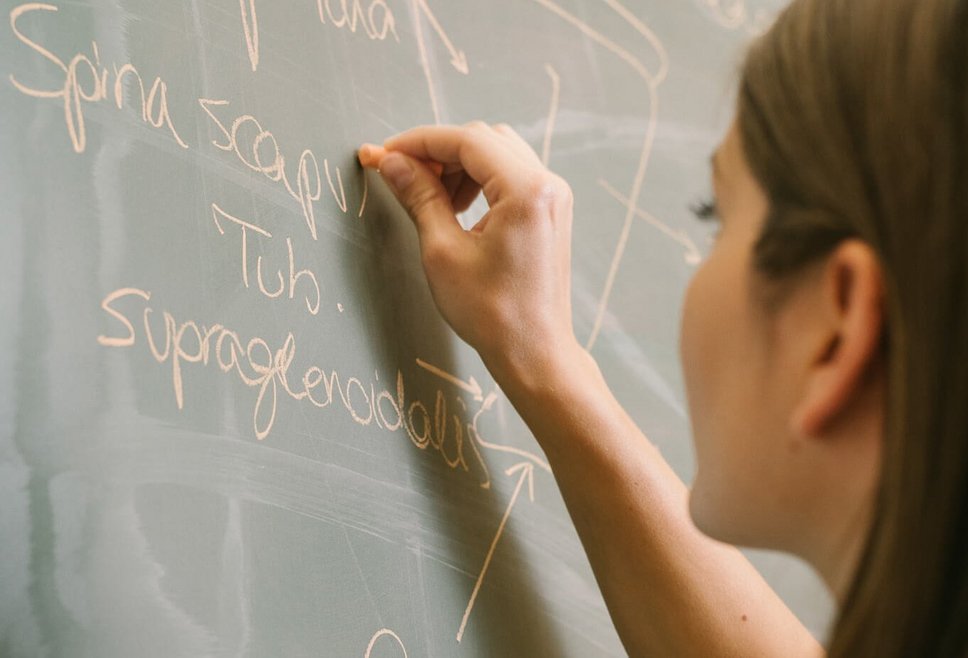 Spina scapu
Tub.
supraglenoidalis